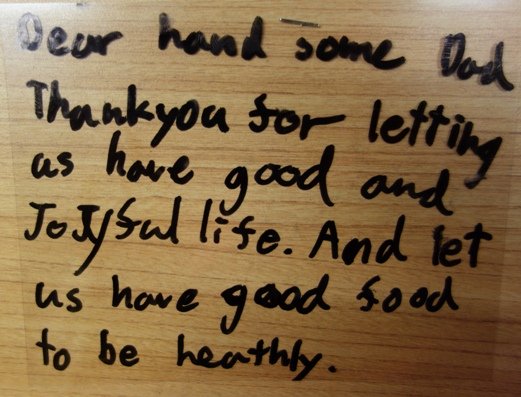 Dear hand some Dad
Thankyou for letting
us have good and
JoJyful life. And let
us have good food
to be heathly.